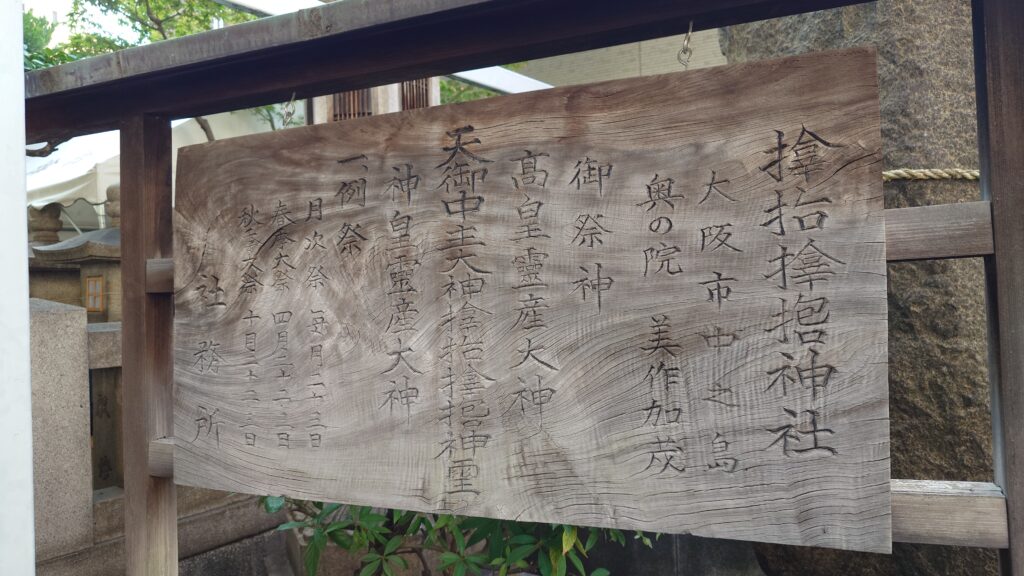 神社
大阪市中之島
奥の院 美作加茂
御祭神
髙皇靈産大神
天御中主大神
神皇靈産大神
一、例祭
月次祭 毎月二十三日
春季大祭 四月二十二、三日
秋季大祭 十月二十二、三日
社務所